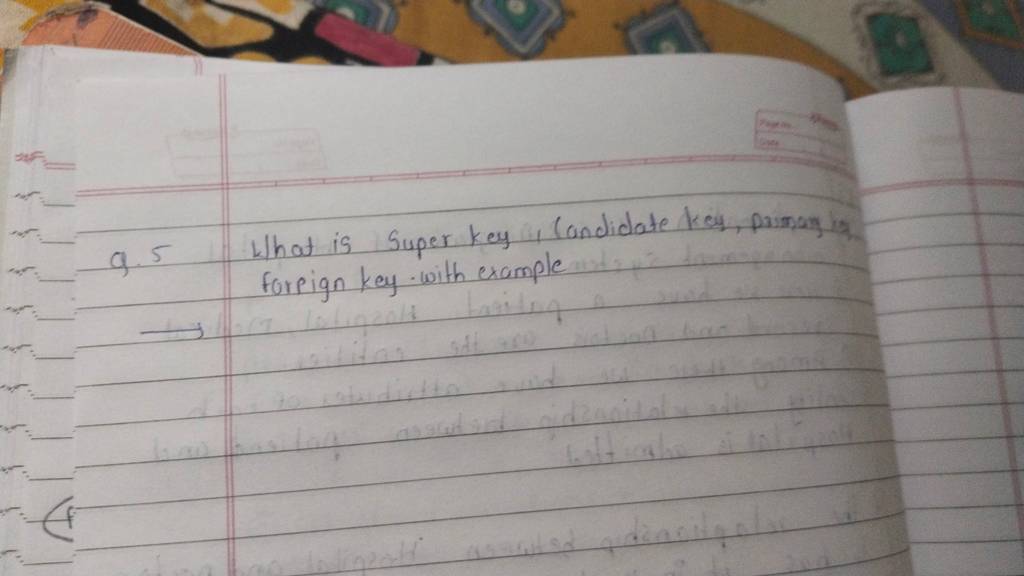 Page No.
Date
Q. 5 What is Super key, Candidate key, primary key
foreign key. with example